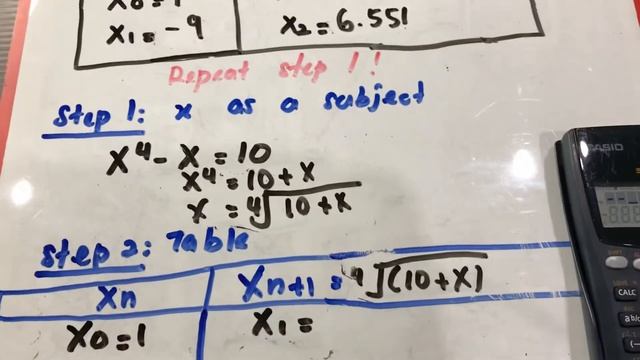 x₀=1
x₁=-9 x₂=6.551
Repeat step 1!
Step 1: x as a subject
x⁴-x=10
x⁴=10+x
x=⁴√10+x
Step 2: Table
xn xn+1=⁴√(10+x)
x₀=1 x₁=
CASIO
CALC